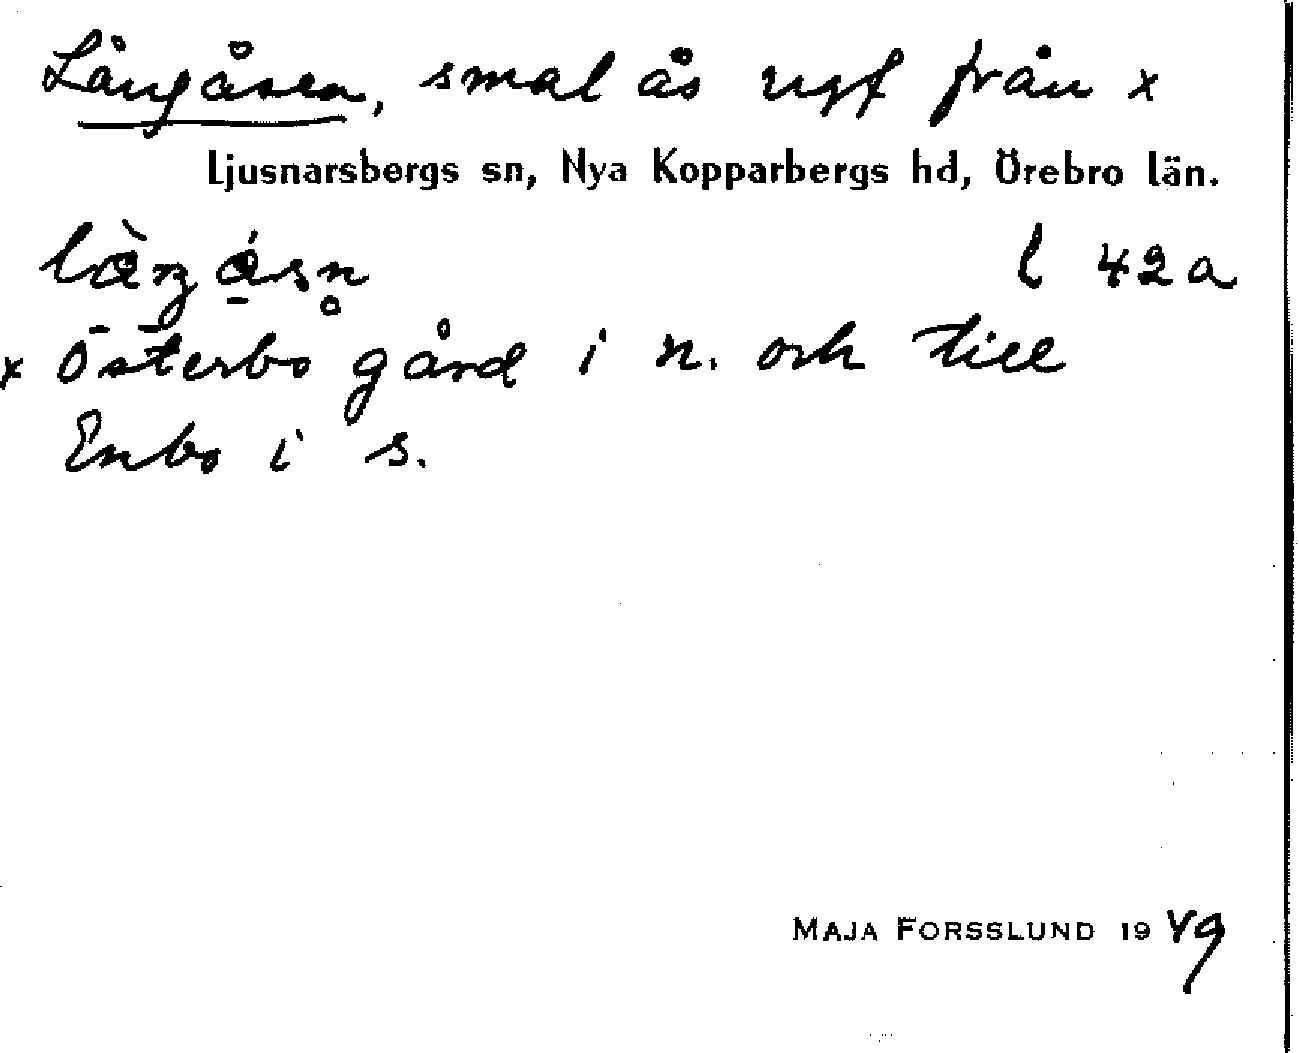 Långåsen, smal ås ungf från x
Ljusnarsbergs sn, Nya Kopparbergs hd, Örebro län.
l 42a
x Österbo gård i n. och till
Enbo i s.
MAJA FORSSLUND 1949